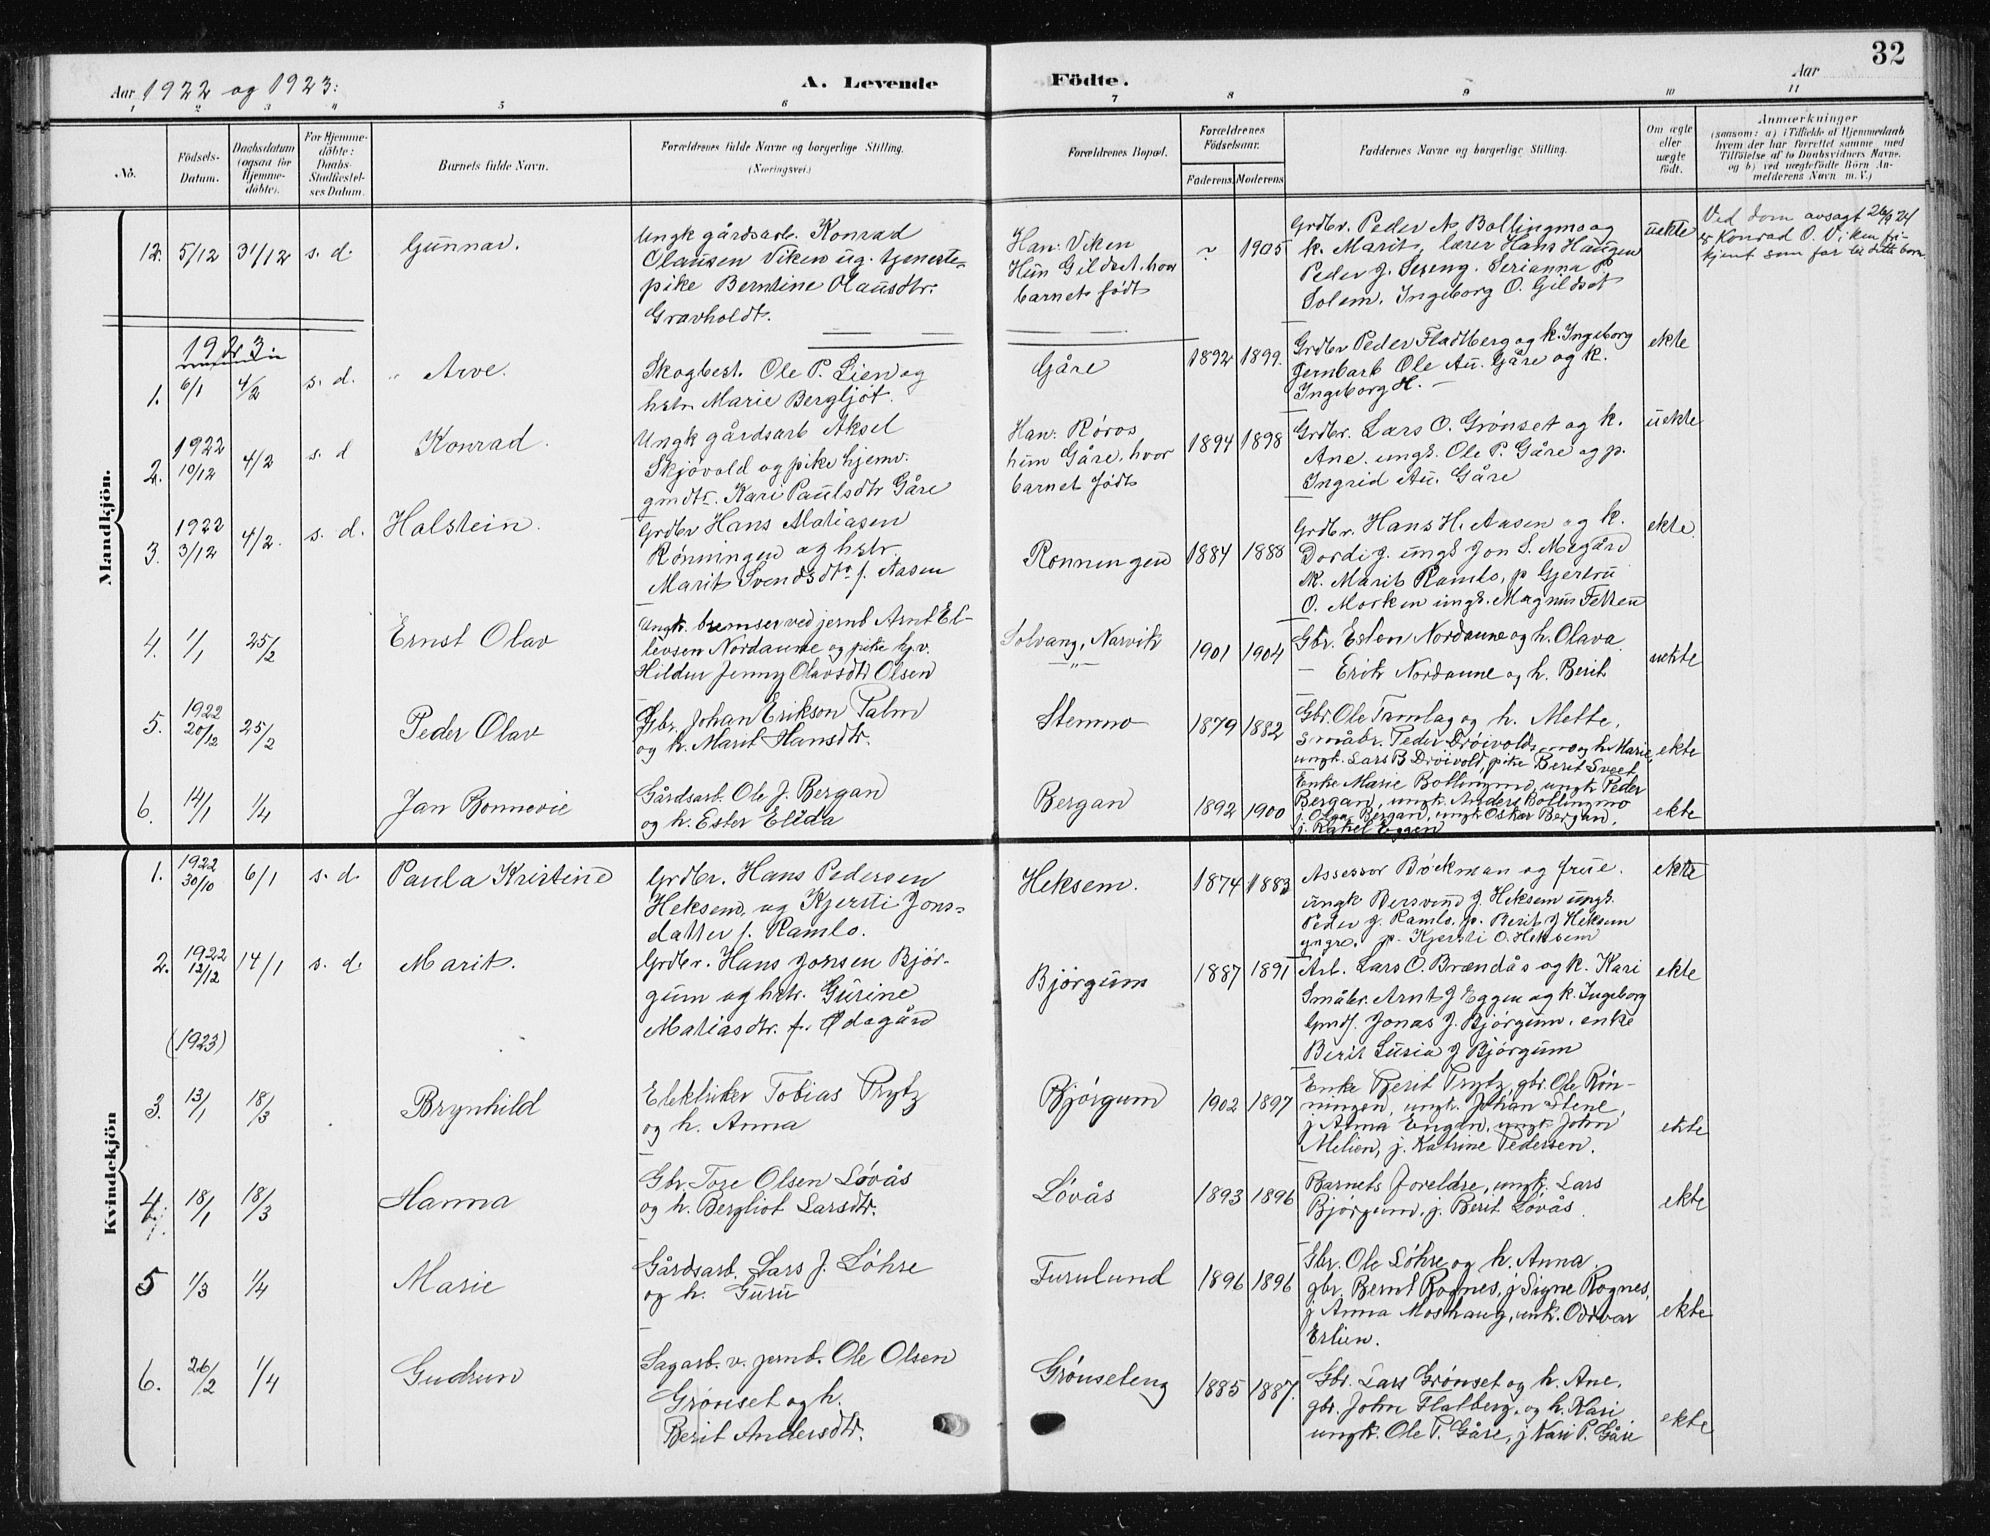 32
Aar 1922 og 1923:
A. Levende
Födte.
Aar
1 2 3 4 5 6 7 8 9 10 11
No.
Födsels-
Datum.
Daabsdatum
(ogsaa for
Hjemme-
döbte).
For Hjemme-
döbte:
Daabs-
Stadfæstel-
ses Datum.
Barnets fulde Navn.
Forældrenes fulde Navne og borgerlige Stilling.
(Næringsvei.)
Forældrenes Bopæl.
Forældrenes
Födselsaar.
Faderens. Moderens.
Faddernes Navne og borgerlige Stilling.
Om ægte
eller
uægte
født.
Anmærkninger
(saasom: a) i Tilfælde af Hjemmedaab
hvem der har forrettet samme med
Tilföielse af to Daabsvidners Navne.
og b) ved uægtefödte Börn An-
melderens Navn m. V.)
Mandkjön.
12. 5/12 31/12 s. d. Gunnar.
Ungk gårdsarb. Konrad
Olausen Viken ug. tjeneste-
pike Berntine Olausdtr.
Gravholdt.
Han: Viken
Hun Gildset, hvor
barnet født
1905
Grdbr. Peder A. Bollingmo og
k. Marit, lærer Hans Haugen
Peder J. Seseng. Serianna P.
Solem. Ingeborg O. Gildset
uekte
Ved dom avsagt 26/9 24
er Konrad O. Viken fri-
kjent som far til dette barn.
1923
1. 6/1 4/2 s. d. Arve.
Skogbest. Ole P. Lien og
hstr. Marie Bergljot.
Gåre
1892 1899.
Grdbr Peder Fladberg og k. Ingeborg
Jernbarb Ole Au. Gåre og k.
Ingeborg H. –
ekte
2. 1922
19/12 4/2 s. d Konrad.
Ungk gårdsarb Aksel
Skjøvold og pike hjemv.
gmdtr. Kari Paulsdtr Gåre
Han: Røros
hun Gåre, hvor
barnet født
1894 1898
Grdbr. Lars O. Grønset og k.
Ane. ungk. Ole P. Gåre og p.
Ingrid Au. Gåre
uekte
3. 1922
3/12 4/2. s. d. Halstein.
Grdbr Hans Matiasen
Rønningen og hstr.
Marit Svendsdtr f. Aasen
Rønningen
1884 1888
Grdbr. Hans H. Aasen og k.
Dordi J. ungk Jon S. Megård
k. Marit Ramlo, p Gjertru
O. Morken ungk. Magnus Fetten
ekte.
4. 1/1 25/2 Ernst Olav
Ungk. bremser ved jernb Arnt El-
levsen Nordaune og pike hjv.
Hildur Jenny Olavsdtr Olsen
Solvang, Narvik
– " –
1901 1904
Gbr. Esten Nordaune og h. Olava
– Erik Nordaune og h. Berit
uekte
5. 1922
20/12 25/2 Peder Olav
Gbr. Johan Erikson Talm
og h. Marit Hansdtr.
Stenmo
1879 1882
Gbr. Ole Tamlag og h. Mette,
småbr. Peder Drøivoldsmo og h. Marie,
ungk. Lars B Drøivold, pike Berit Sveet
ekte
6. 14/1 1/4 Jan Bonnevie
Gårdsarb. Ole J. Bergan
og h. Ester Elida
Bergan
1892 1900
Enke Marie Bollingmo, ungk Peder
Bergan, ungk. Anders Bollingmo
j. Olga Bergan, ungk Oskar Bergan,
j. Rakel Eggen
ekte
Kvindekjön
1. 1922
30/10 6/1 s. d. Paula Kristine
Grdbr. Hans Pedersen
Heksem, og Kjersti Jons-
datter f. Ramlo.
Heksem.
1874 1883
Assessor Bøckman og frue.
ungk Bersvend J. Heksem ungk.
Peder J. Ramlo. p. Berit J Heksem
yngre. p. Kjersti O. Heksem
ekte
2. 1922
12/12 14/1 s. d. Marit.
Grdbr. Hans Jonsen Bjør-
gum og hstr. Gurine
Matiasdtr. f. Ødegård
Bjørgum
1887 1891
Arb. Lars O. Brændås og k. Kari
Småbr. Arnt J Eggen og k. Ingeborg
Gmdf. Jonas J. Bjørgum. enke
Berit Lusia J Bjørgum
ekte
(1923)
3. 13/1 18/3 Brynhild
Elektriker Tobias Prytz
og h. Anna
Bjørgum
1902 1897
Enke Berit Prytz, gbr. Ole Røn-
ningen, ungk. Johan Stene,
j Anna Engen, ungk. John
Melien, j. Katrine Pedersen.
ekte
4. 18/1 18/3 Hanna
Gbr Tore Olsen Løvås
og h. Bergliot Larsdtr.
Løvås
1893 1896
Barnets foreldre, ungk. Lars
Bjørgum, j. Berit Løvås.
ekte
5 1/3 1/4 Marie
Gårdsarb. Lars J. Løhre
og h. Guru
Furulund
1896 1896
Gbr. Ole Løhre og h. Anna,
gbr. Bernt Rognes, j Signe Rognes,
j Anna Moshaug, unk. Oddvar
Erlien.
ekte
6. 26/2 1/4 Gudrun
Sagarb. v. jernb. Ole Olsen
Grønset og h.
Berit Andersdtr.
Grønseteng
1885 1887.
Gbr. Lars Grønset og h. Ane.
gbr. John Flatberg, og h. Kari
ungk. Ole P. Gåre, j Kari P. Gåre
ekte